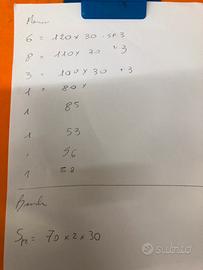 6 = 120 x 30 . sp. 3
8 = 110 x 30 " 3
3 = 100 x 30 " 3
1 = 80 x
1 85
1 53
56
1
Sp = 70 x 2 x 30
subito